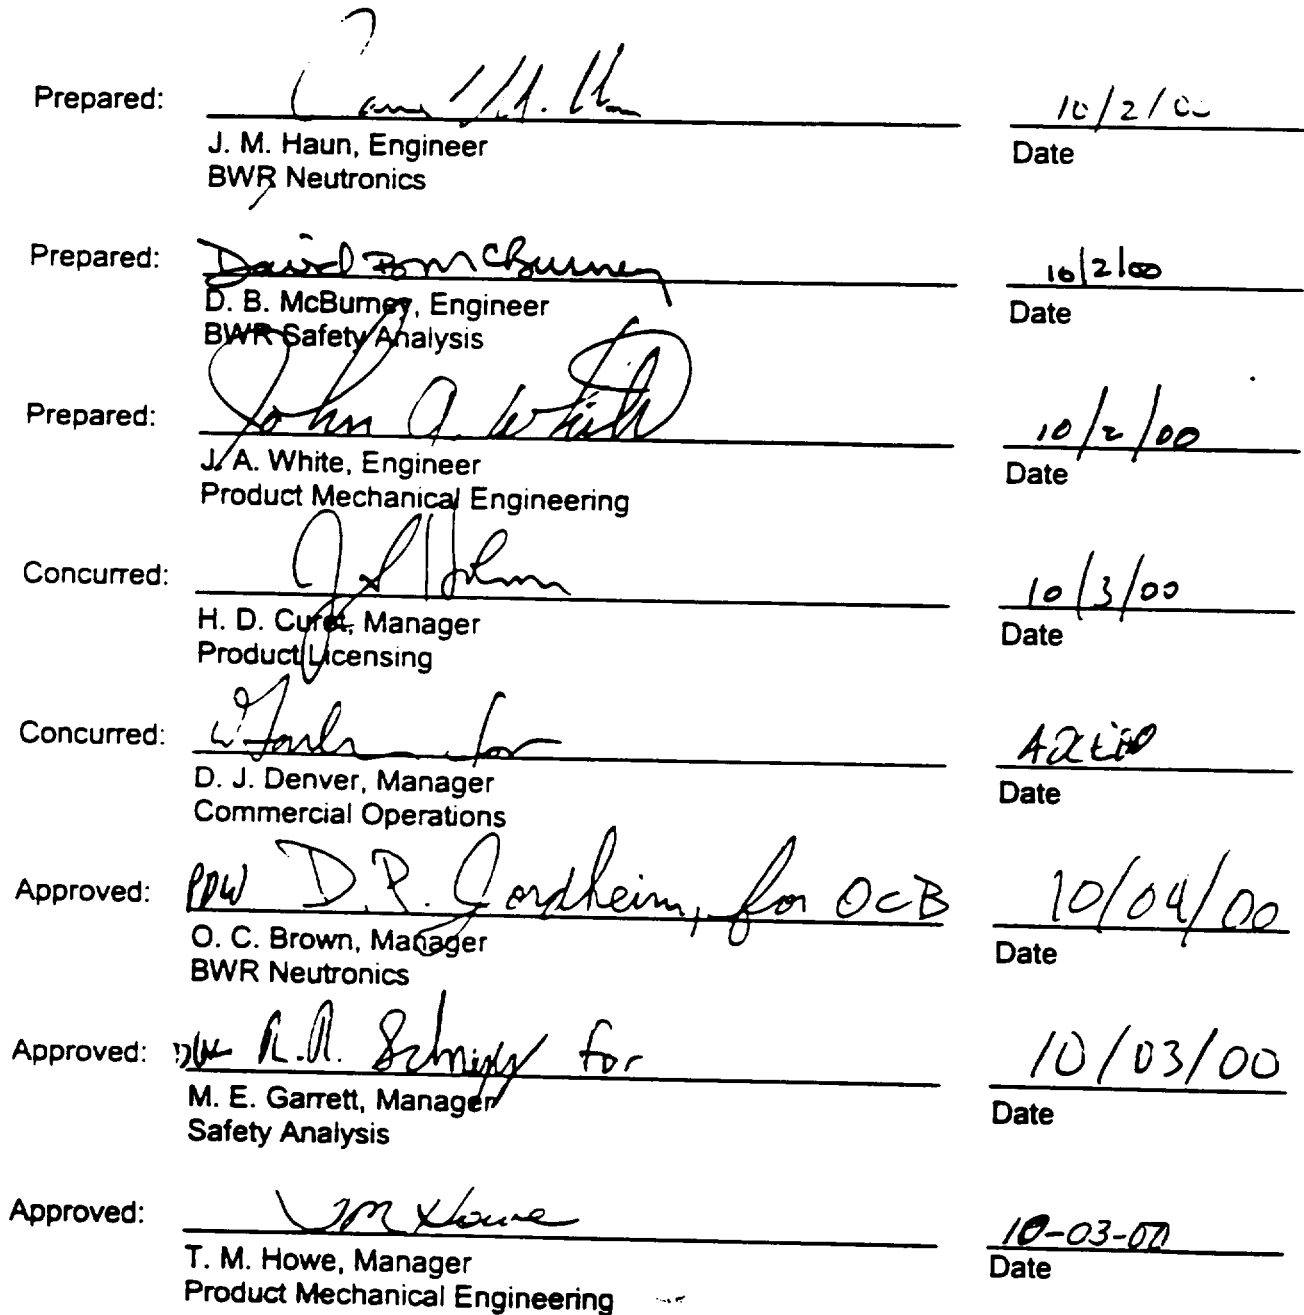 Prepared: 10/2/00
J. M. Haun, Engineer Date
BWR Neutronics
Prepared: David B McBurney 10/2/00
D. B. McBurney, Engineer Date
BWR Safety Analysis
Prepared: John A. White 10/2/00
J. A. White, Engineer Date
Product Mechanical Engineering
Concurred: 10/3/00
H. D. Curet, Manager Date
Product Licensing
Concurred: for
D. J. Denver, Manager Date
Commercial Operations
Approved: D. P. Gordheim, for OCB 10/04/00
O. C. Brown, Manager Date
BWR Neutronics
Approved: R.R. for 10/03/00
M. E. Garrett, Manager Date
Safety Analysis
Approved: TM Howe 10-03-00
T. M. Howe, Manager Date
Product Mechanical Engineering